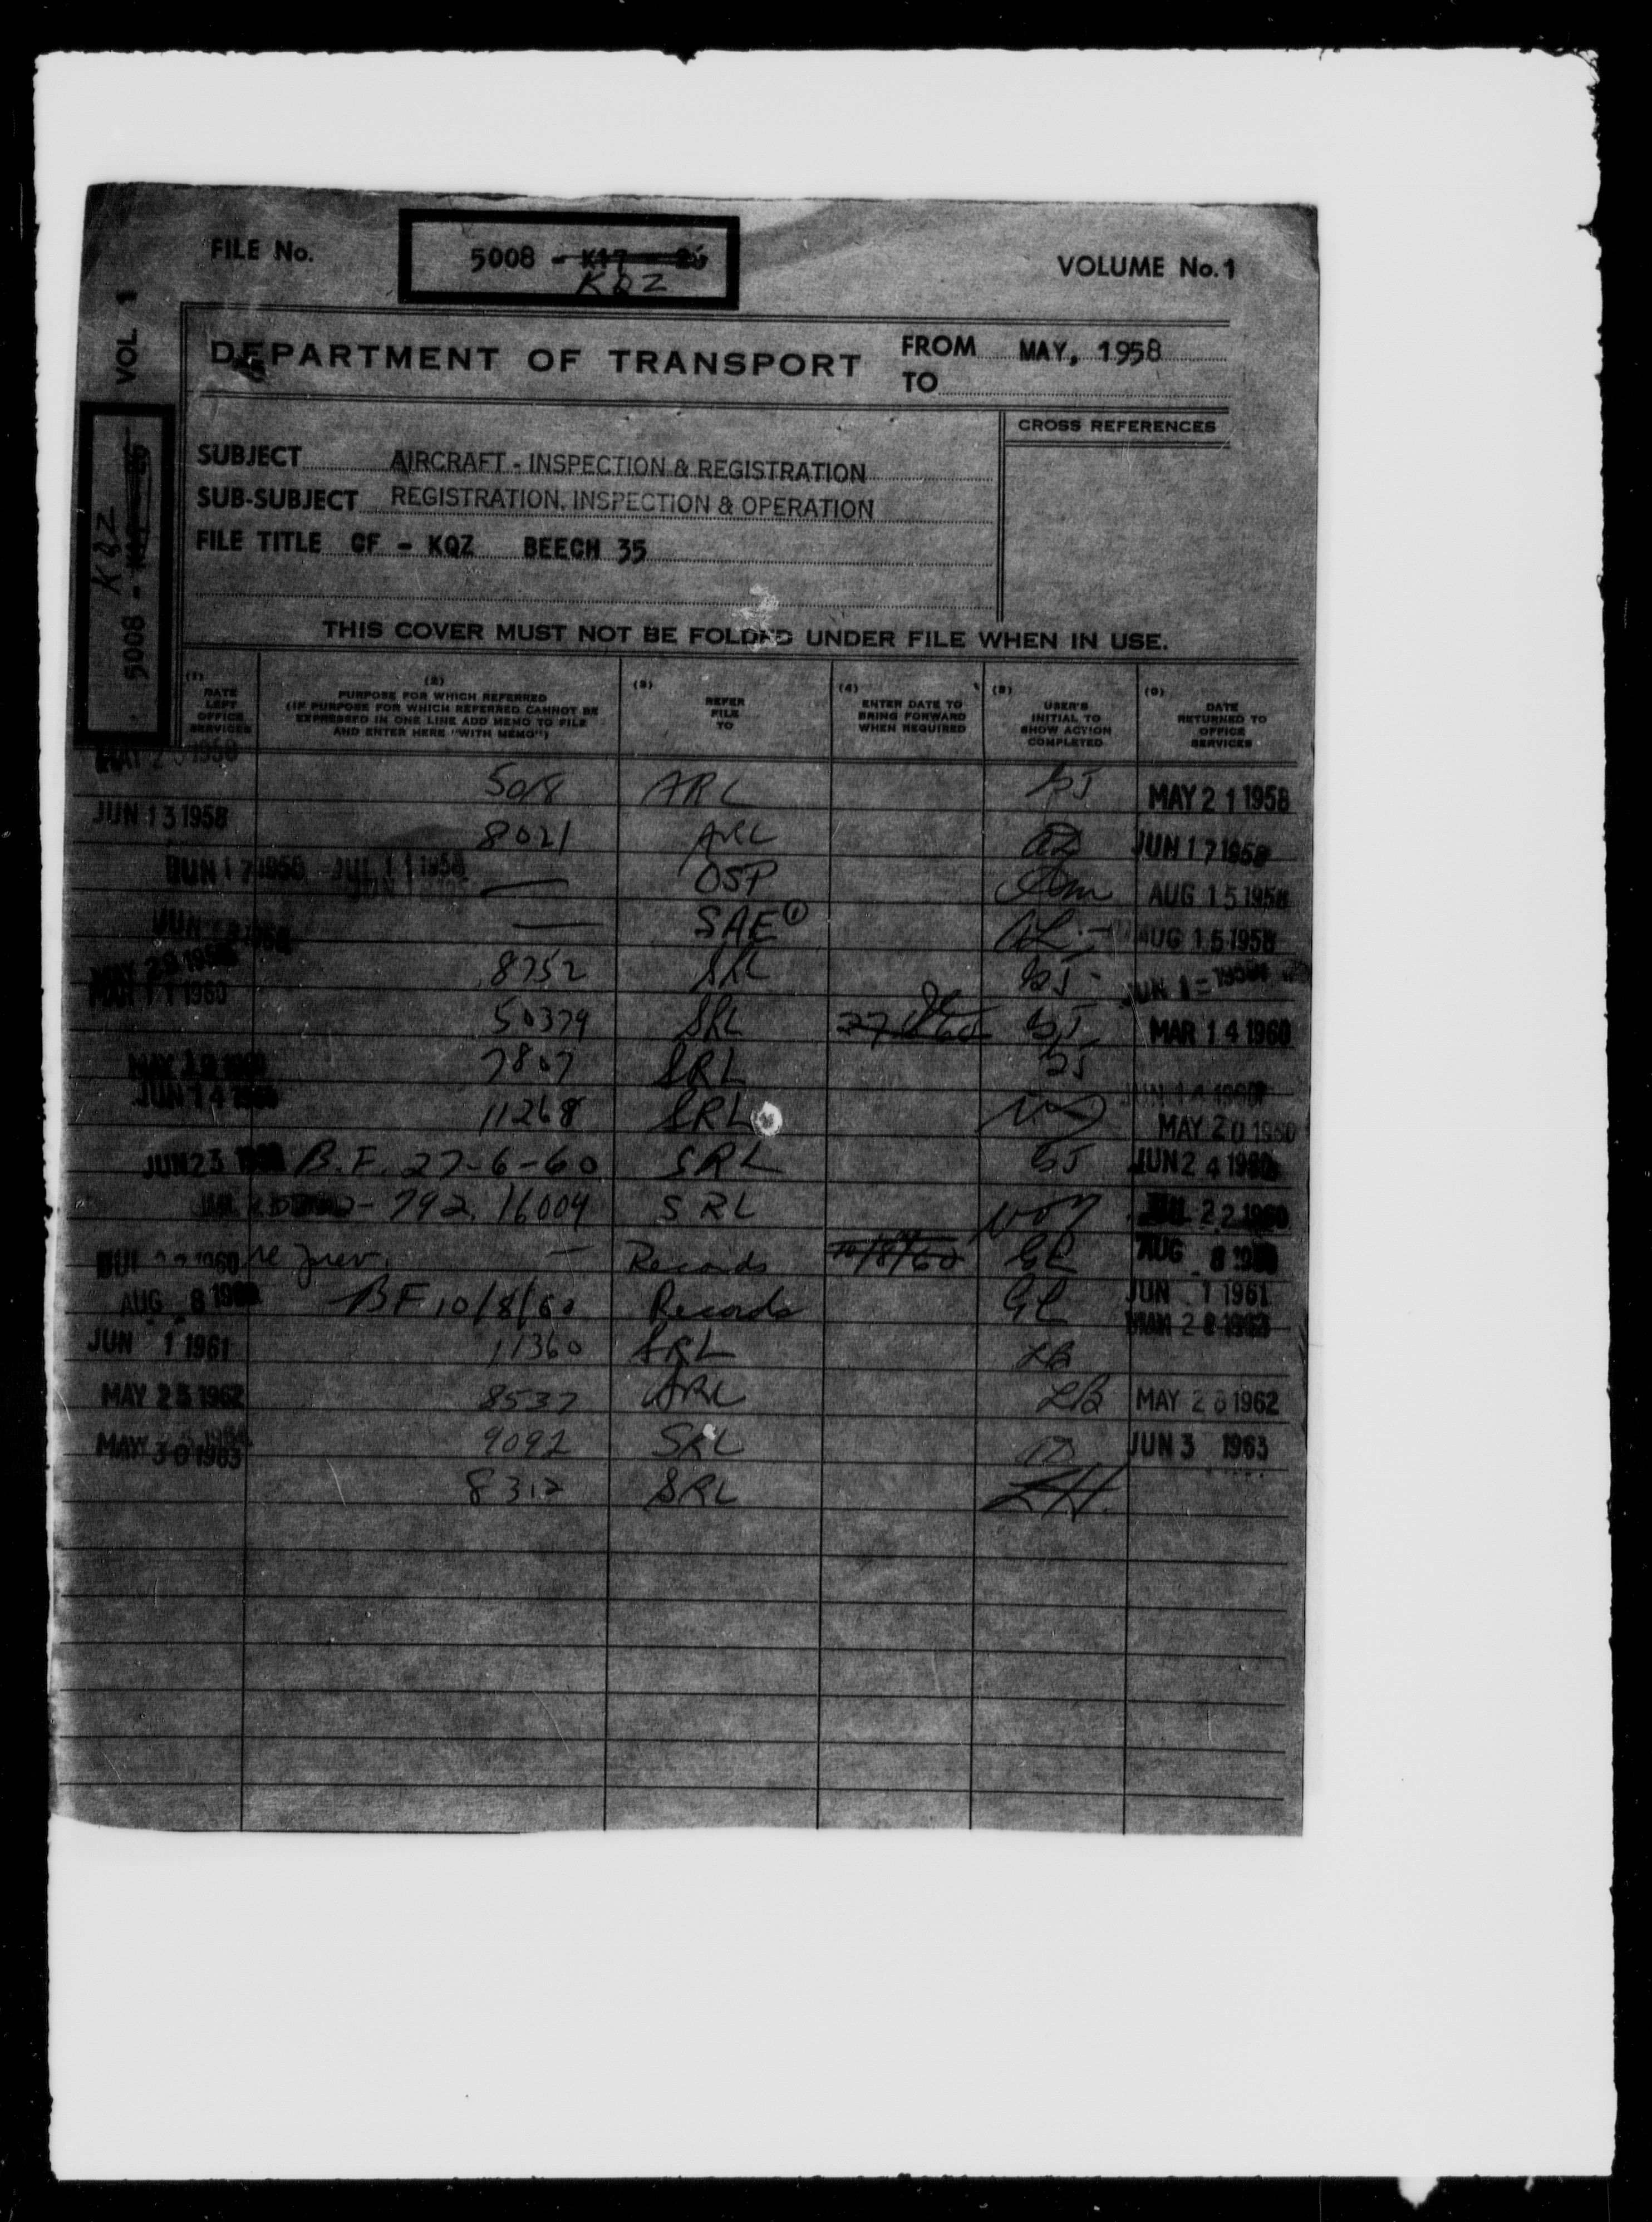 FILE No. 5008 - K17 - 26 VOLUME No. 1
KQZ
VOL 1
DEPARTMENT OF TRANSPORT FROM MAY, 1958
TO
CROSS REFERENCES
SUBJECT AIRCRAFT - INSPECTION & REGISTRATION
SUB-SUBJECT REGISTRATION, INSPECTION & OPERATION
FILE TITLE CF - KQZ BEECH 35
5008 - KQZ
THIS COVER MUST NOT BE FOLDED UNDER FILE WHEN IN USE.
(1) DATE LEFT OFFICE SERVICES
(2) PURPOSE FOR WHICH REFERRED (IF PURPOSE FOR WHICH REFERRED CANNOT BE EXPRESSED IN ONE LINE ADD MEMO TO FILE AND ENTER HERE "WITH MEMO")
(3) REFER FILE TO
(4) ENTER DATE TO BRING FORWARD WHEN REQUIRED
(5) USER'S INITIAL TO SHOW ACTION COMPLETED
(6) DATE RETURNED TO OFFICE SERVICES
5018 ARL MAY 21 1958
JUN 13 1958 8021 ARL JUN 17 1958
JUN 17 1958 JUL 11 1958 — OSP AUG 15 1958
— SAE① AUG 15 1958
8752 SRL
MAR 11 1960 50379 SRL MAR 14 1960
7807 SRL
JUN 14 11268 SRL MAY 20 1960
JUN 23 B.F. 27-6-60 SRL JUN 24 1960
792. 16009 SRL JUL 22 1960
1960 — Records 10/8/60 GL AUG 8
AUG 8 BF 10/8/60 Records GL JUN 1 1961
JUN 1 1961 11360 SRL LB
MAY 25 1962 8537 ARL LB MAY 28 1962
MAY 30 1963 9092 SRL JUN 3 1963
8312 SRL LH.